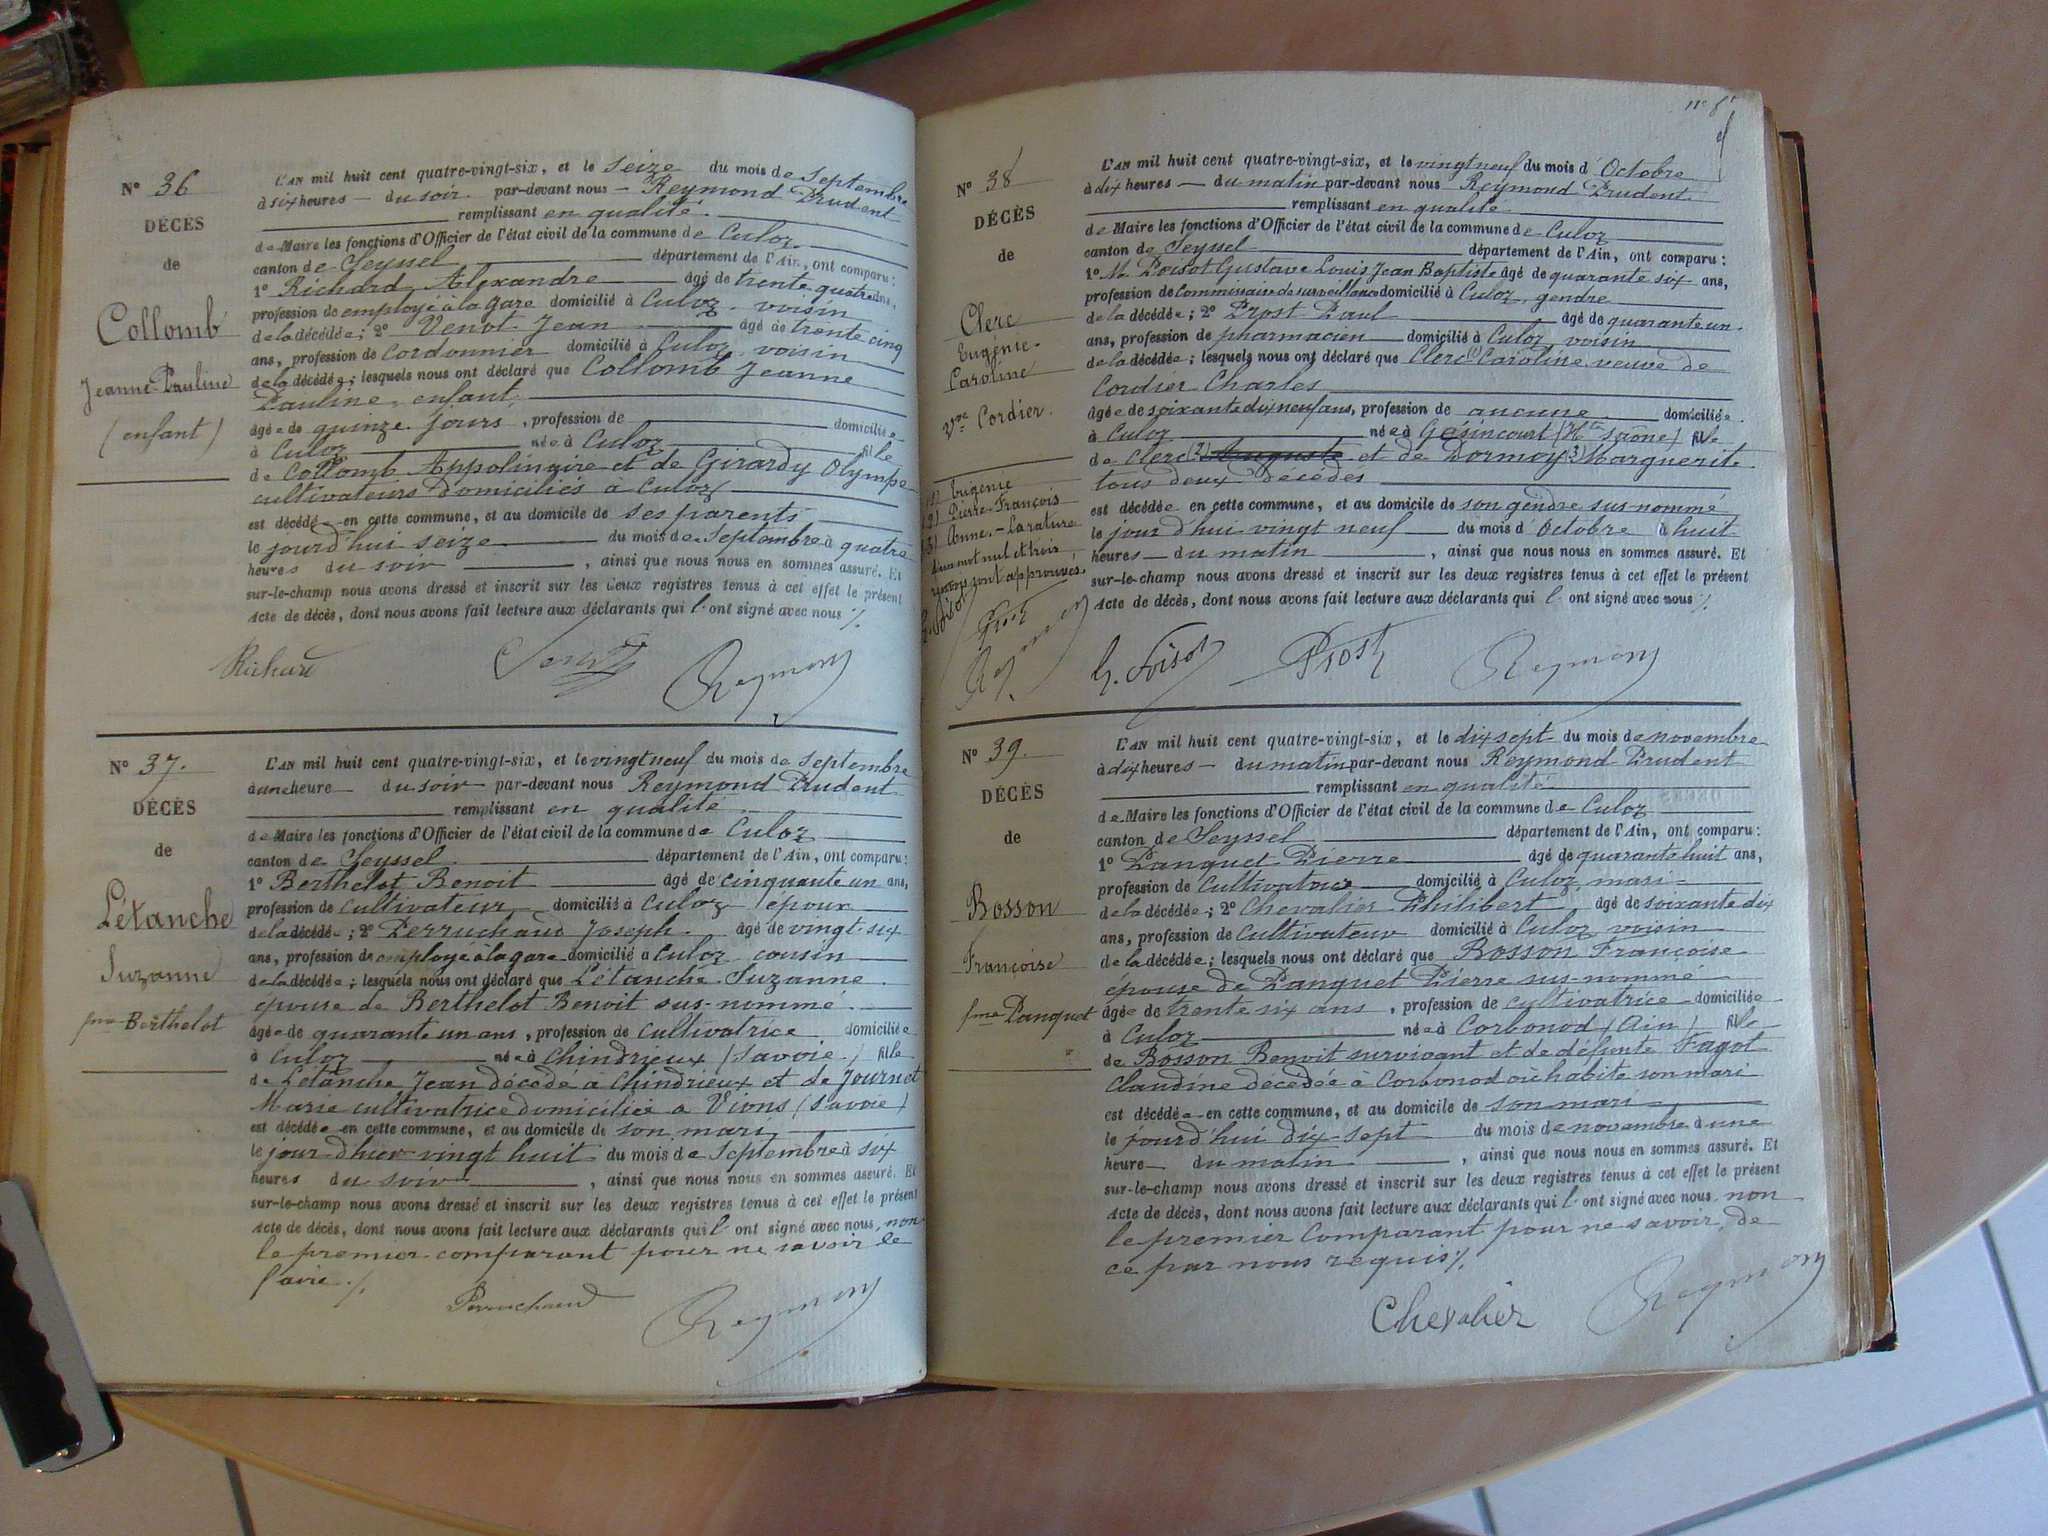 N° 36
DÉCÈS
de
Collomb
Jeanne Pauline
(enfant)
L'AN mil huit cent quatre-vingt-six, et le seize du mois de Septembre
à six heures — du soir par-devant nous — Reymond Prudent
remplissant en qualité
de Maire les fonctions d'Officier de l'état civil de la commune de Culoz
canton de Seyssel département de l'Ain, ont comparu :
1° Richard Alexandre âgé de trente quatre ans,
profession de employé à la gare domicilié à Culoz voisin
de la décédée ; 2° Venot Jean âgé de trente cinq
ans, profession de Cordonnier domicilié à Culoz voisin
de la décédée ; lesquels nous ont déclaré que Collomb Jeanne
Pauline, enfant
âgée de quinze jours, profession de domiciliée
à Culoz née à Culoz fille
de Collomb Appolinaire et de Girardy Olympe
cultivateurs domiciliés à Culoz
est décédée en cette commune, et au domicile de ses parents
le jourd'hui seize du mois de Septembre à quatre
heures du soir, ainsi que nous nous en sommes assuré. Et
sur-le-champ nous avons dressé et inscrit sur les deux registres tenus à cet effet le présent
Acte de décès, dont nous avons fait lecture aux déclarants qui l'ont signé avec nous ./.
Richard Reymond
N° 37.
DÉCÈS
de
Létanche
Suzanne
fme Berthelot
L'AN mil huit cent quatre-vingt-six, et le vingt neuf du mois de Septembre
à une heure — du soir par-devant nous Reymond Prudent
remplissant en qualité
de Maire les fonctions d'Officier de l'état civil de la commune de Culoz
canton de Seyssel département de l'Ain, ont comparu :
1° Berthelot Benoit âgé de cinquante un ans,
profession de cultivateur domicilié à Culoz époux
de la décédée ; 2° Perruchaud Joseph. âgé de vingt-six
ans, profession de employé à la gare domicilié à Culoz cousin
de la décédée ; lesquels nous ont déclaré que Létanche Suzanne
épouse de Berthelot Benoit sus-nommé
âgée de quarante un ans, profession de cultivatrice domiciliée
à Culoz née à Chindrieux (Savoie) fille
de Létanche Jean décédé à Chindrieux et de Journet
Marie cultivatrice domiciliée à Vions (Savoie)
est décédée en cette commune, et au domicile de son mari
le jour d'hier vingt huit du mois de Septembre à six
heures du soir, ainsi que nous nous en sommes assuré. Et
sur-le-champ nous avons dressé et inscrit sur les deux registres tenus à cet effet le présent
Acte de décès, dont nous avons fait lecture aux déclarants qui l'ont signé avec nous, non
le premier comparant pour ne savoir le
faire ./.
Perruchaud Reymond
N° 38
DÉCÈS
de
Clerc
Eugénie-
Caroline
Vve Cordier.
(1) Eugénie
(2) Pierre-François
(3) Anne-
d'un mot nul et trois
renvois sont approuvés.
Prost
Reymond
L'AN mil huit cent quatre-vingt-six, et le vingt neuf du mois d'Octobre
à dix heures — du matin par-devant nous Reymond Prudent
remplissant en qualité
de Maire les fonctions d'Officier de l'état civil de la commune de Culoz
canton de Seyssel département de l'Ain, ont comparu :
1° M. Poisot Gustave Louis Jean Baptiste âgé de quarante six ans,
profession de Commissaire de surveillance domicilié à Culoz, gendre
de la décédée ; 2° Prost Paul âgé de quarante un
ans, profession de pharmacien domicilié à Culoz, voisin
de la décédée ; lesquels nous ont déclaré que Clerc (1) Caroline veuve de
Cordier Charles
âgée de soixante dix neuf ans, profession de aucune domiciliée
à Culoz née à Gésincourt (Hte Saône) fille
de Clerc (2) Auguste et de Dormoy (3) Marguerite
tous deux décédés
est décédée en cette commune, et au domicile de son gendre sus nommé
le jourd'hui vingt neuf du mois d'Octobre à huit
heures — du matin, ainsi que nous nous en sommes assuré. Et
sur-le-champ nous avons dressé et inscrit sur les deux registres tenus à cet effet le présent
Acte de décès, dont nous avons fait lecture aux déclarants qui l'ont signé avec nous ./.
G. Poisot Prost Reymond
N° 39.
DÉCÈS
de
Bosson
Françoise
fme Panquet
L'AN mil huit cent quatre-vingt-six, et le dix sept du mois de novembre
à dix heures — du matin par-devant nous Reymond Prudent
remplissant en qualité
de Maire les fonctions d'Officier de l'état civil de la commune de Culoz
canton de Seyssel département de l'Ain, ont comparu :
1° Panquet Pierre âgé de quarante huit ans,
profession de Cultivateur domicilié à Culoz, mari
de la décédée ; 2° Chevalier Philibert âgé de soixante dix
ans, profession de Cultivateur domicilié à Culoz voisin
de la décédée ; lesquels nous ont déclaré que Bosson Françoise
épouse de Panquet Pierre sus-nommé
âgée de trente six ans, profession de cultivatrice domiciliée
à Culoz née à Corbonod (Ain) fille
de Bosson Benoit survivant et de défunte Fagot
Claudine décédée à Corbonod où habite son mari
est décédée en cette commune, et au domicile de son mari
le jourd'hui dix-sept du mois de novembre à une
heure — du matin, ainsi que nous nous en sommes assuré. Et
sur-le-champ nous avons dressé et inscrit sur les deux registres tenus à cet effet le présent
Acte de décès, dont nous avons fait lecture aux déclarants qui l'ont signé avec nous non
le premier Comparant pour ne savoir, de
ce par nous requis ./.
Chevalier Reymond